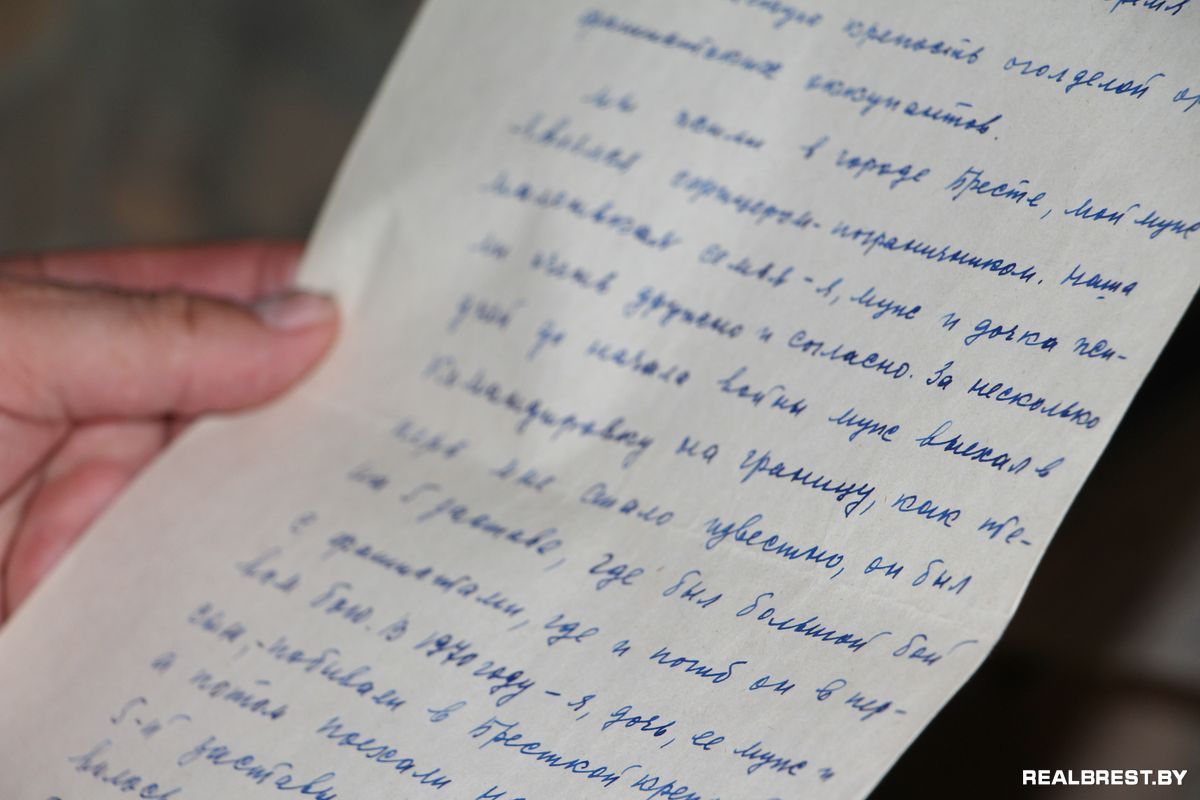 крепость оголделой
фашистских оккупантов.
мы жили в городе Бресте, мой муж
являлся офицером-пограничником. Наша
маленькая семья - я, муж и дочка жи-
ли очень дружно и согласно. За несколько
дней до начала войны муж выехал в
командировку на границу, как те-
перь мне стало известно, он был
на 5 заставе, где был большой бой
с фашистами, где и погиб он в пер-
вом бою. В 1970 году - я, дочь, ее муж и
сын, - побывали в Бресткой
а потом поехали на
5-й заставы
REALBREST.BY